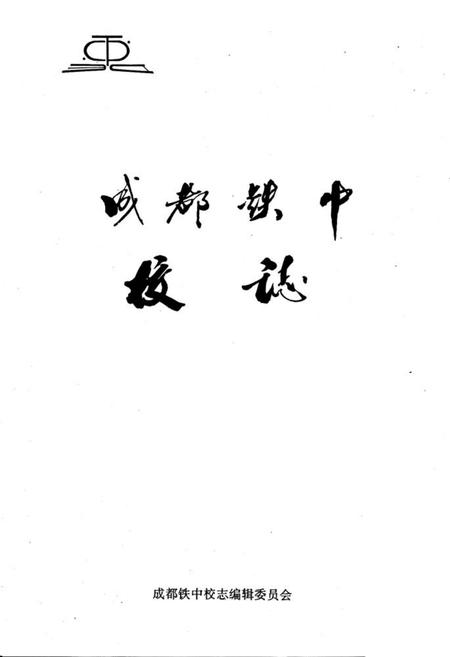 成都铁中
校誌
成都铁中校志编辑委员会